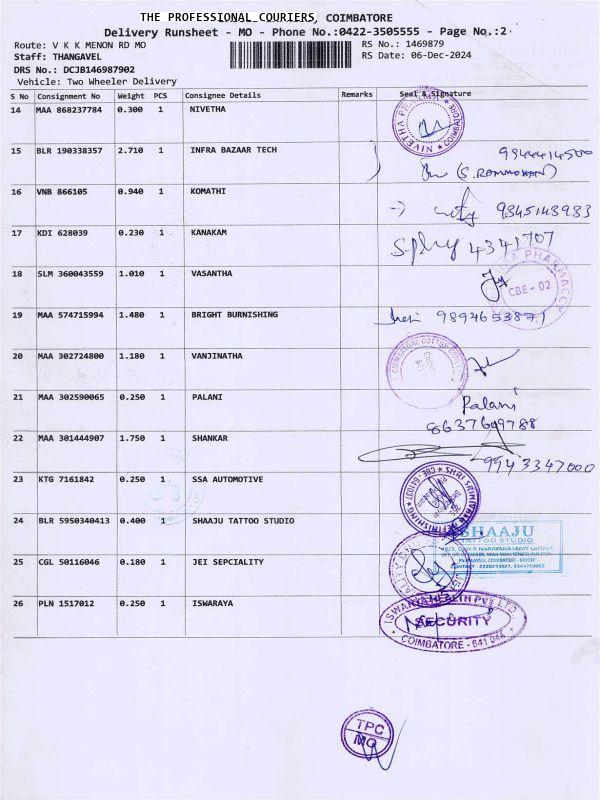 THE PROFESSIONAL COURIERS, COIMBATORE
Delivery Runsheet - MO - Phone No.:0422-3505555 - Page No.:2
Route: V K K MENON RD MO
RS No.: 1469879
Staff: THANGAVEL
RS Date: 06-Dec-2024
DRS No.: DCJB146987902
Vehicle: Two Wheeler Delivery
S No Consignment No Weight PCS Consignee Details Remarks Seal & Signature
14 MAA 868237784 0.300 1 NIVETHA
COIMBATORE
15 BLR 190338357 2.710 1 INFRA BAZAAR TECH
16 VNB 866105 0.940 1 KOMATHI
9345143983
17 KDI 628039 0.230 1 KANAKAM
4341707
18 SLM 360043559 1.010 1 VASANTHA
CBE - 02
19 MAA 574715994 1.480 1 BRIGHT BURNISHING
9894653871
20 MAA 302724800 1.180 1 VANJINATHA
21 MAA 302590065 0.250 1 PALANI
Palani
8637609788
22 MAA 301444907 1.750 1 SHANKAR
9943347000
23 KTG 7161842 0.250 1 SSA AUTOMOTIVE
24 BLR 5950340413 0.400 1 SHAAJU TATTOO STUDIO
SHAAJU
TATTOO STUDIO
25 CGL 50116046 0.180 1 JEI SEPCIALITY
26 PLN 1517012 0.250 1 ISWARAYA
SECURITY
COIMBATORE - 641 044
TPC
MO